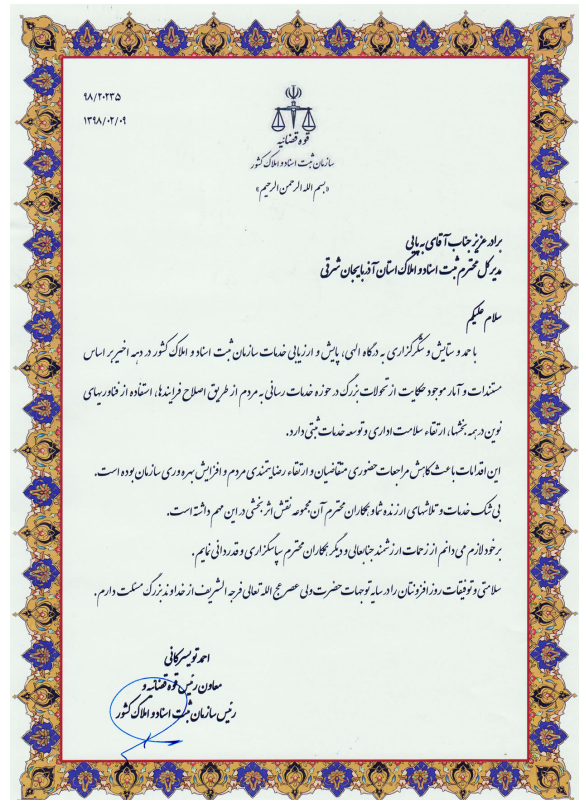 ۹۸/۲۰۲۳۵
۱۳۹۸/۰۲/۰۹
قوه قضائیه
سازمان ثبت اسناد و املاک کشور
«بسم الله الرحمن الرحیم»
برادر عزیز جناب آقای بهپایی
مدیر کل محترم ثبت اسناد و املاک استان آذربایجان شرقی
سلام علیکم
با حمد و ستایش و شکرگزاری به درگاه الهی، پایش و ارزیابی خدمات سازمان ثبت اسناد و املاک کشور در دهه اخیر بر اساس
مستندات و آمار موجود حکایت از تحولات بزرگ در حوزه خدمات رسانی به مردم از طریق اصلاح فرایندها، استفاده از فناوریهای
نوین در همه بخشها، ارتقاء سلامت اداری و توسعه خدمات ثبتی دارد.
این اقدامات باعث کاهش مراجعات حضوری متقاضیان و ارتقاء رضایتمندی مردم و افزایش بهره وری سازمان بوده است.
بی شک خدمات و تلاشهای ارزنده شما و همکاران محترم آن مجموعه نقش اثر بخشی در این مهم داشته است.
بر خود لازم می دانم از زحمات ارزشمند جنابعالی و دیگر همکاران محترم سپاسگزاری و قدردانی نمایم.
سلامتی و توفیقات روز افزونتان را در سایه توجهات حضرت ولی عصر عجل الله تعالی فرجه الشریف از خداوند بزرگ مسئلت دارم.
احمد تویسرکانی
معاون رئیس قوه قضائیه و
رئیس سازمان ثبت اسناد و املاک کشور